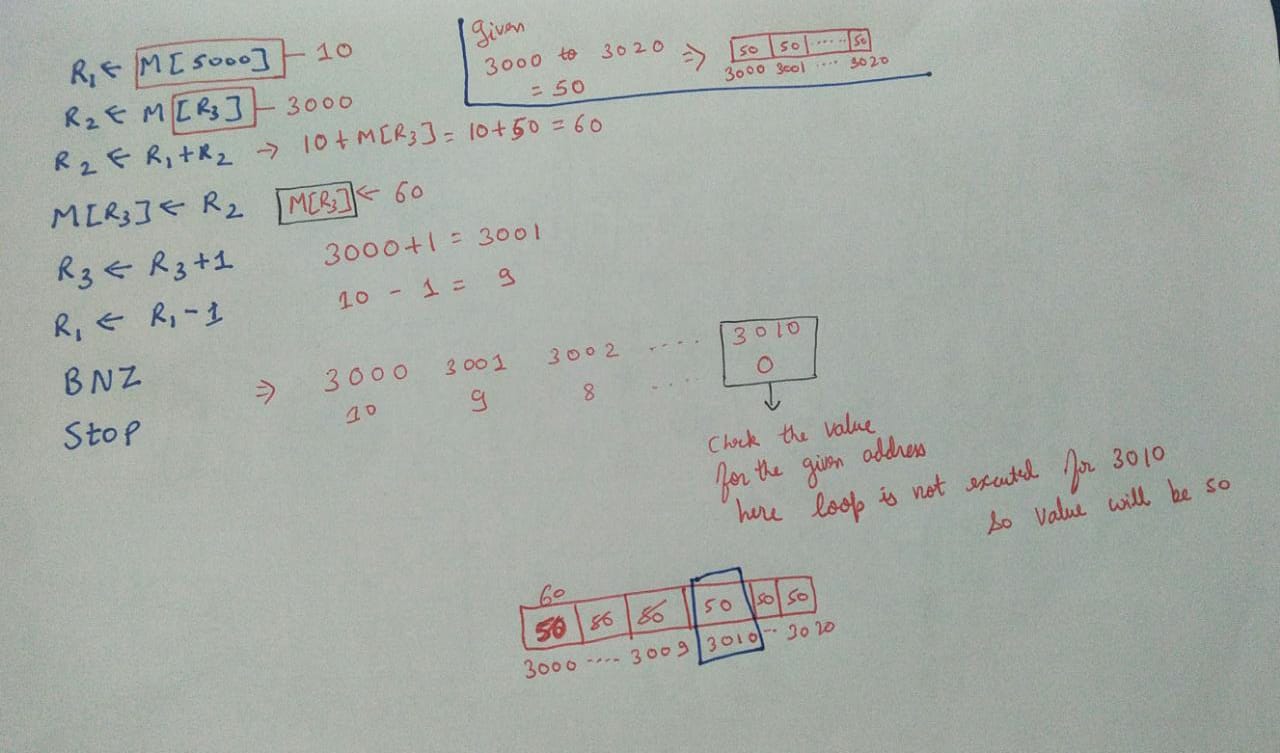 R₁ ← M[5000] — 10
R₂ ← M[R₃] — 3000
R₂ ← R₁+R₂ → 10+M[R₃] = 10+50 = 60
M[R₃] ← R₂ M[R₃] ← 60
R₃ ← R₃+1 3000+1 = 3001
R₁ ← R₁-1 10 - 1 = 9
BNZ
Stop
Given
3000 to 3020 ⇒ 50 50 ...... 50
= 50 3000 3001 .... 3020
⇒ 3000 3001 3002 .... 3010
10 9 8 .... 0
Check the value
for the given address
here loop is not excuted for 3010
so value will be 50
60
50 50 50 50 50 50
3000 .... 3009 3010 .. 3020